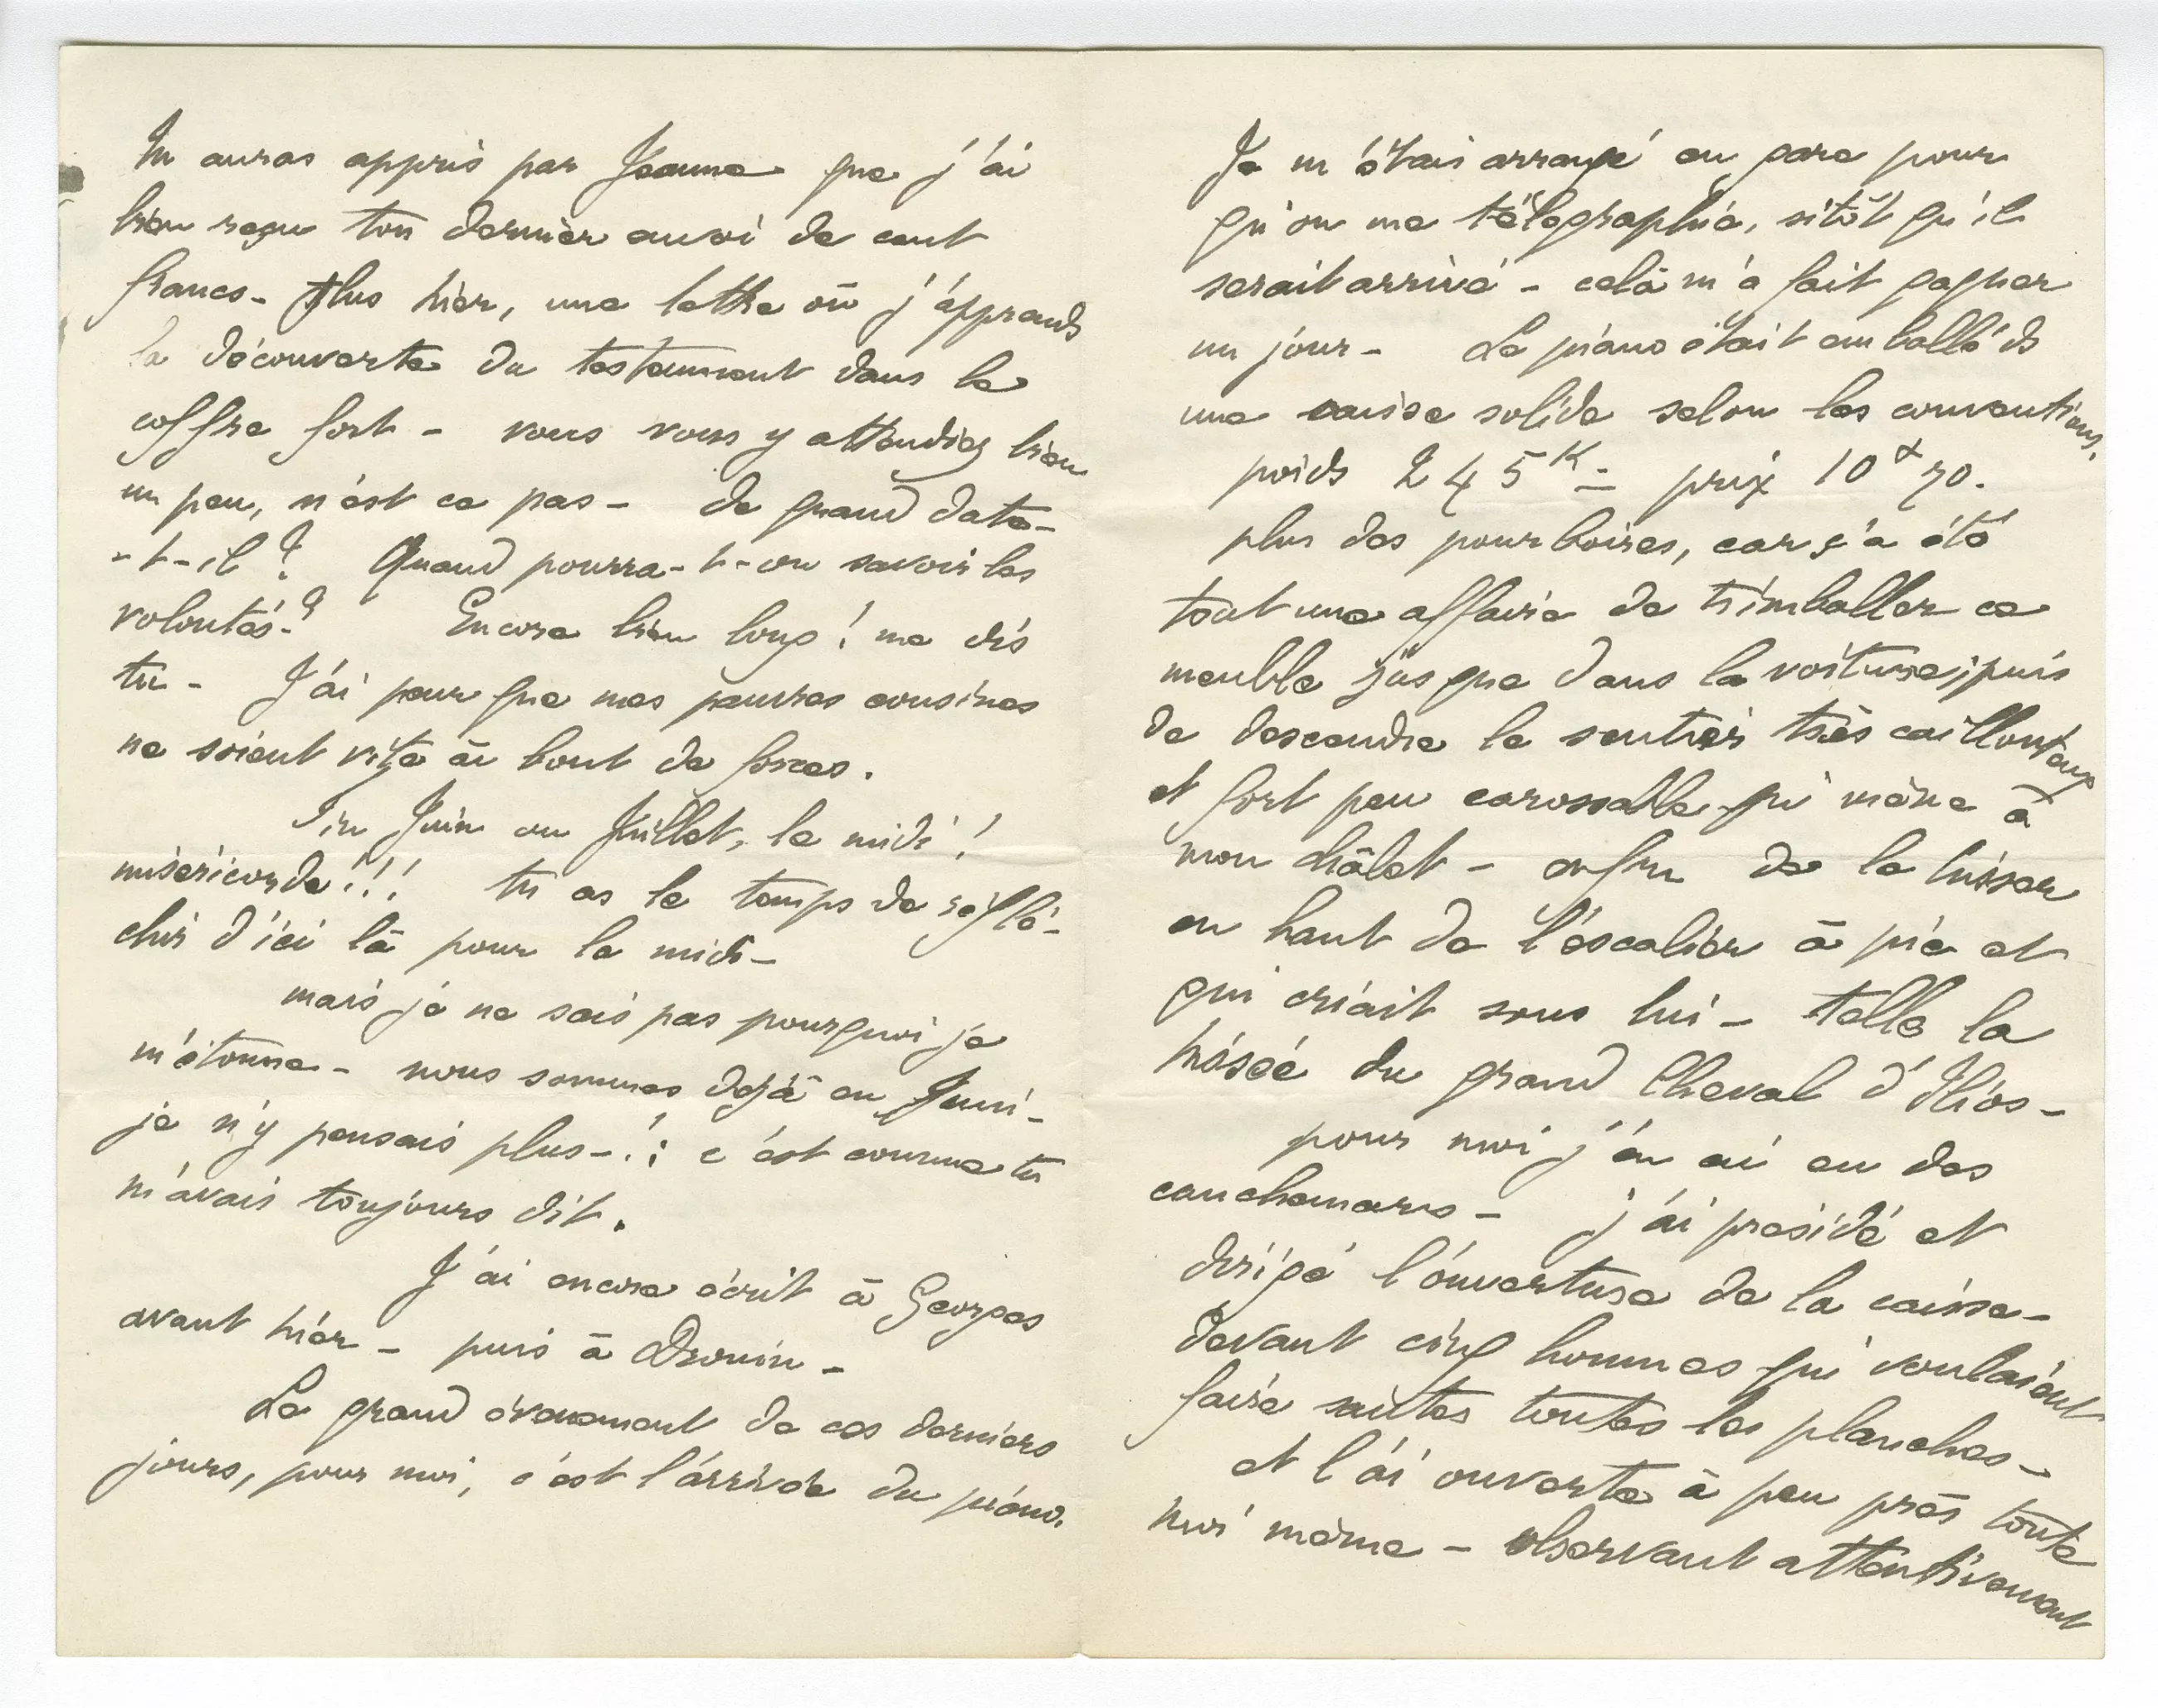 Tu auras appris par Jeanne que j'ai
bien reçu ton dernier envoi de cent
francs - Plus hier, une lettre où j'apprends
la découverte du testament dans le
coffre fort - vous vous y attendiez bien
un peu, n'est ce pas - de quand date-
-t-il ? Quand pourra-t-on savoir les
volontés ? Encore bien long ! me dis
tu - J'ai peur que mes pauvres cousines
ne soient vite au bout de forces.
Fin Juin ou Juillet, le midi !
miséricorde !!! tu as le temps de réflé-
chir d'ici là pour le midi -
mais je ne sais pas pourquoi je
m'étonne - nous sommes déjà en Juin -
je n'y pensais plus - ! : c'est comme tu
m'avais toujours dit.
J'ai encore écrit à Georges
avant hier - puis à Drouin -
Le grand évenement de ces derniers
jours, pour moi, c'est l'arrivée du piano.
Je m'étais arrangé en gare pour
qu'on me télégraphie, sitôt qu'il
serait arrivé - celà m'a fait gagner
un jour - Le piano était emballé ds
une caisse solide selon les conventions.
poids 245 K - prix 10 f 70.
plus des pourboires, car ç'a été
tout une affaire de trimballer ce
meuble jusque dans la voiture, puis
de descendre le sentier très caillouteux
et fort peu carossable qui mène à
mon châlet - enfin de le hisser
en haut de l'escalier à pic et
qui criait sous lui - telle la
hissée du grand Cheval d'Ilios -
pour moi j'en ai eu des
cauchemars - j'ai présidé et
dirigé l'ouverture de la caisse -
devant cinq hommes qui voulaient
faire sauter toutes les planches -
et l'ai ouverte à peu près toute
moi même - observant attentivement